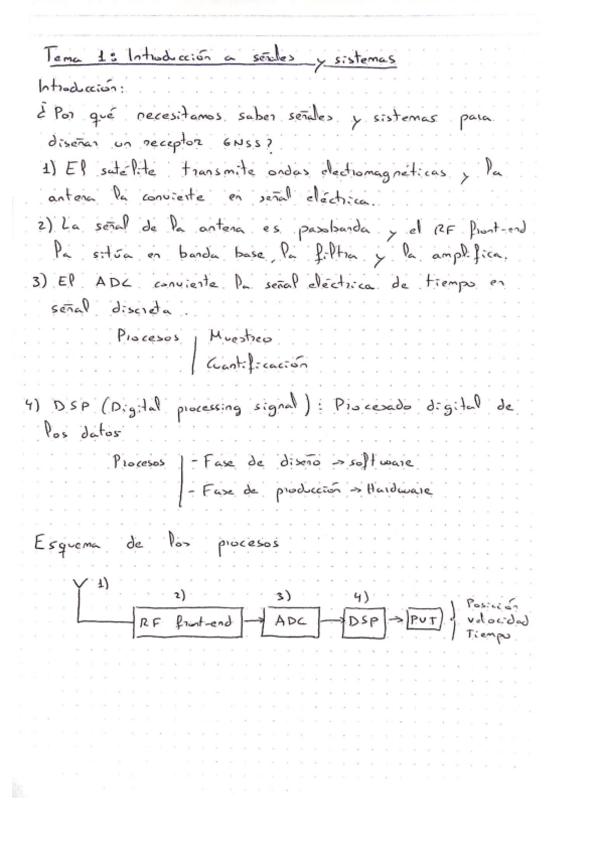 Tema 1: Introducción a señales y sistemas
Introducción:
¿Por qué necesitamos saber señales y sistemas para
diseñar un receptor GNSS?
1) El satélite transmite ondas electromagnéticas y la
antena la convierte en señal eléctrica.
2) La señal de la antena es pasobanda y el RF front-end
la sitúa en banda base, la filtra y la amplifica.
3) El ADC convierte la señal eléctrica de tiempo en
señal discreta.
Procesos | Muestreo
| Cuantificación
4) DSP (Digital processing signal): Procesado digital de
los datos
Procesos | - Fase de diseño → software
| - Fase de producción → Hardware
Esquema de los procesos
1)
2) 3) 4)
RF front-end → ADC → DSP → PVT } Posición
velocidad
Tiempo